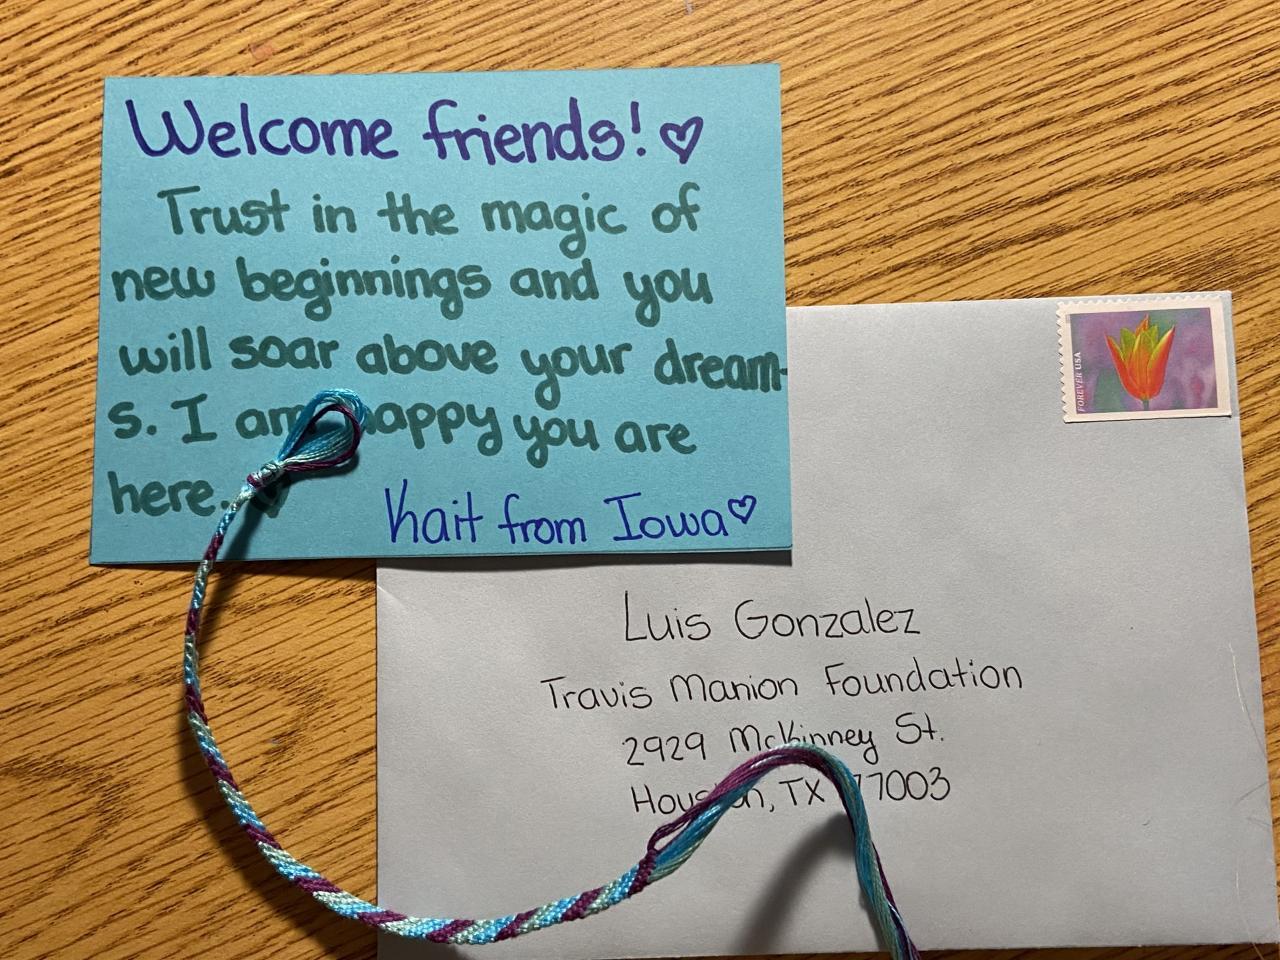 Welcome friends! ♡
Trust in the magic of
new beginnings and you
will soar above your dream-
s. I am happy you are
here. ♡
Kait from Iowa ♡
FOREVER USA
Luis Gonzalez
Travis Manion Foundation
2929 McKinney St.
Houston, TX 77003